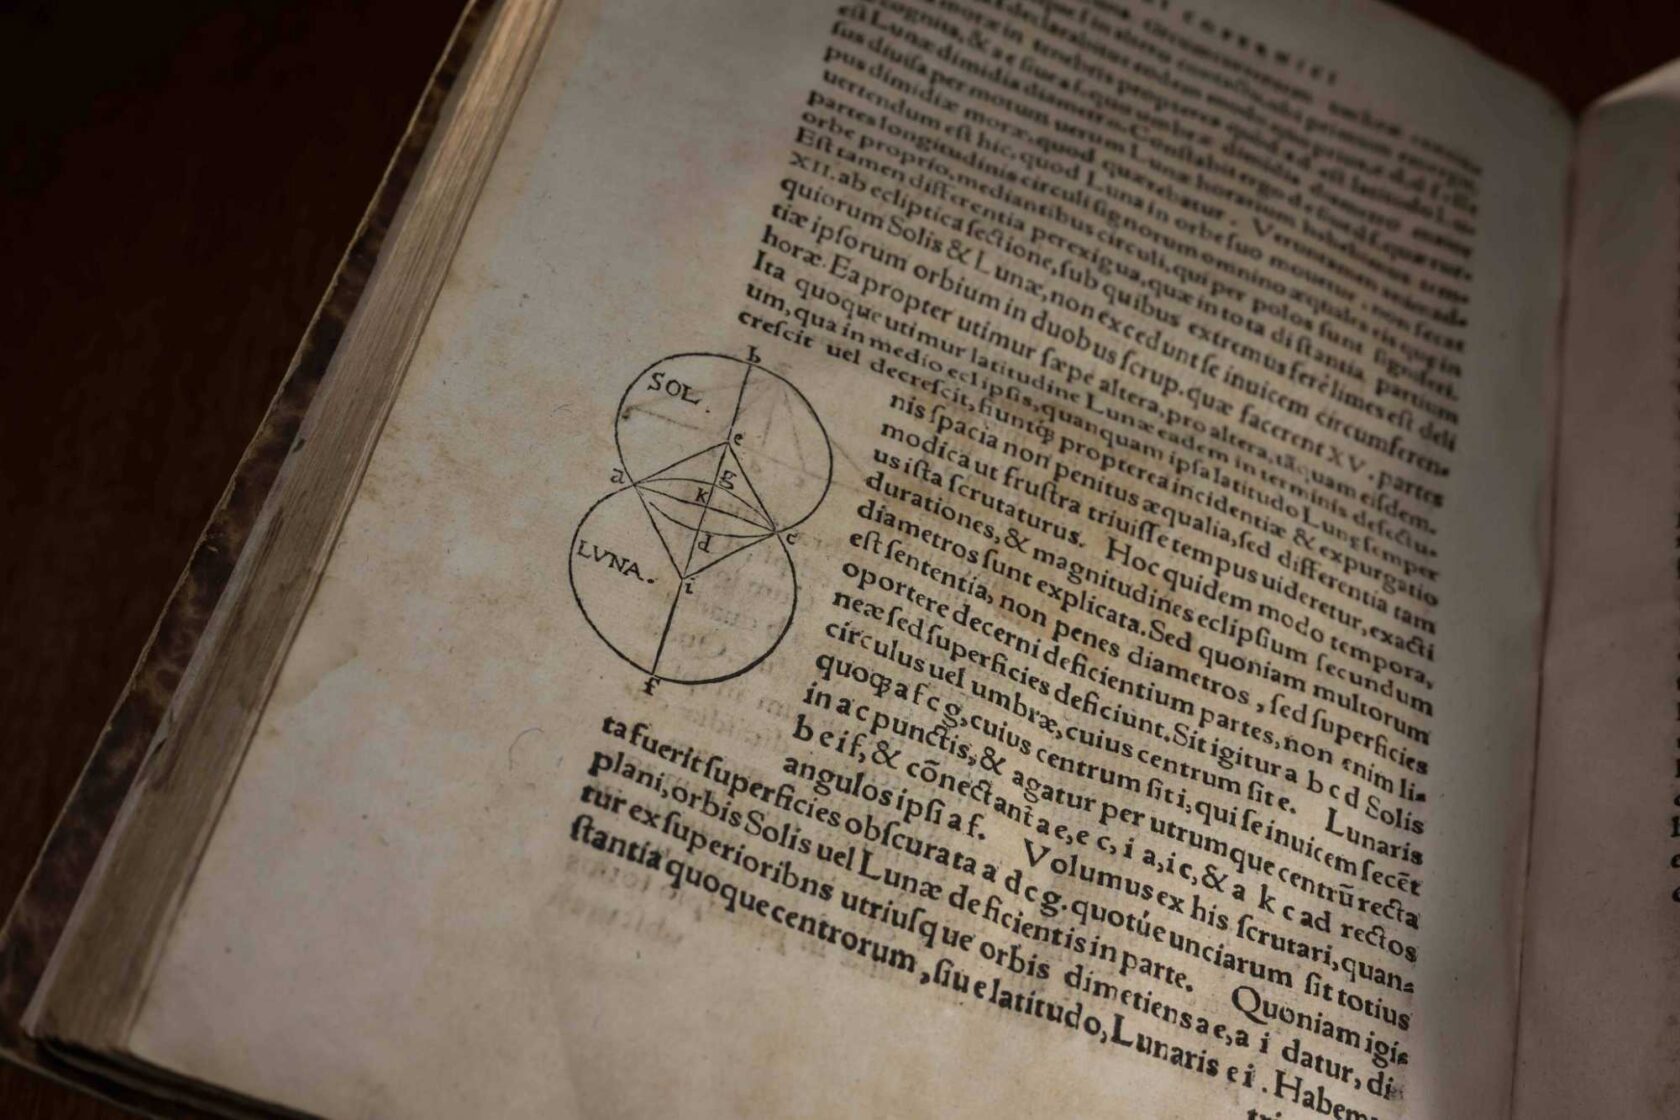 COPERNICI
est Lunæ dimidia diametro. Constabit ergo
sus diuisa per motum uerum Lunæ horarium, habebimus tem-
pus dimidiæ moræ, quod quærebatur. Veruntamen
uertendum est hic, quod Luna in orbe suo mouetur, non secat
partes longitudinis circuli signorum omnino æquales eis quę in
orbe proprio, mediantibus circuli, qui per polos sunt signiferi.
Est tamen differentia perexigua, quæ in tota distantia partium
XII. ab ecliptica sectione, sub quibus extremus ferè limes est deli
quiorum Solis & Lunæ, non excedunt se inuicem circumferen-
tiæ ipsorum orbium in duobus scrup. quæ facerent XV. partes
horæ. Ea propter utimur sæpe altera, pro altera, tāquam eisdem.
Ita quoque utimur latitudine Lunæ eadem in terminis defectu-
um, qua in medio eclipsis, quanquam ipsa latitudo Lunę semper
crescit uel decrescit, fiuntq́ꝫ propterea incidentiæ & expurgatio
nis spacia non penitus æqualia, sed differentia tam
modica ut frustra triuisse tempus uideretur, exacti
us ista scrutaturus. Hoc quidem modo tempora,
durationes, & magnitudines eclipsium secundum
diametros sunt explicata. Sed quoniam multorum
est sententia, non penes diametros, sed superficies
oportere decerni deficientium partes, non enim li-
neæ sed superficies deficiunt. Sit igitur a b c d Solis
circulus uel umbræ, cuius centrum sit e. Lunaris
quoqꝫ a f c g, cuius centrum sit i, qui se inuicem secēt
in a c punctis, & agatur per utrumque centrū recta
b e i f, & cōnectant̃ a e, e c, i a, i c, & a k c ad rectos
angulos ipsi a f. Volumus ex his scrutari, quan-
ta fuerit superficies obscurata a d c g. quotúe unciarum sit totius
plani, orbis Solis uel Lunæ deficientis in parte. Quoniam igi-
tur ex superioribns utriusque orbis dimetiens a e, a i datur, di-
stantia quoque centrorum, siue latitudo, Lunaris e i. Habem
b
SOL.
e
a
g
K
d
c
LVNA.
i
f